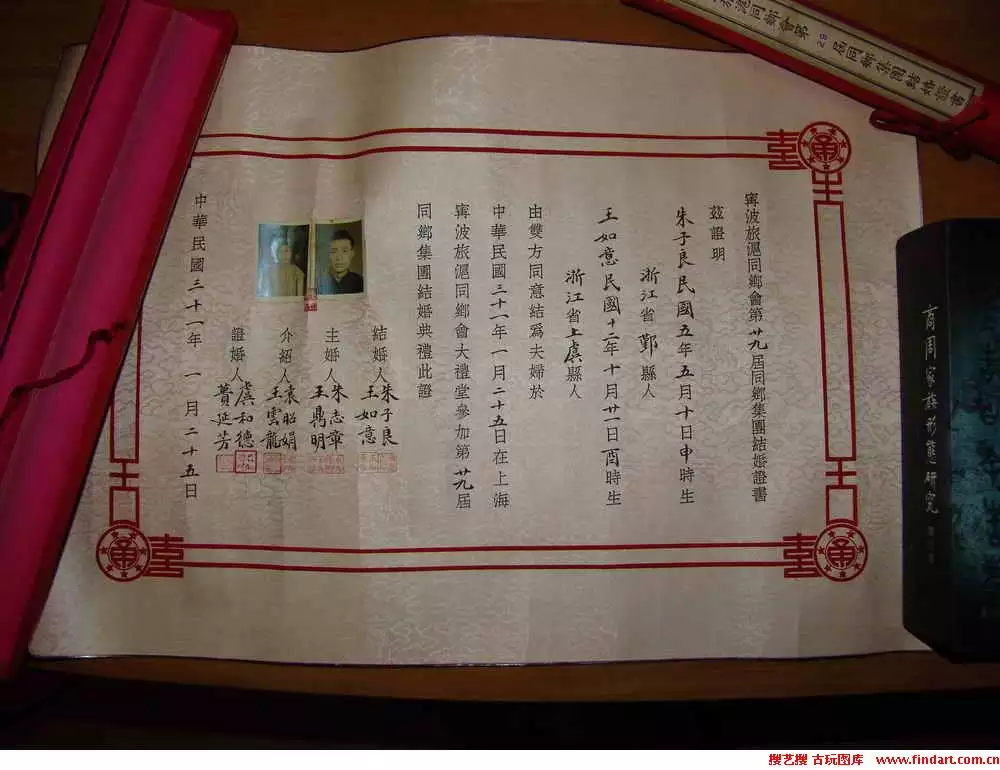 寗波旅滬同鄉會第廿九屆同鄉集團結婚證書
茲證明
朱子良民國五年五月十日申時生
浙江省鄞縣人
王如意民國十二年十月廿一日酉時生
浙江省上虞縣人
由雙方同意結爲夫婦於
中華民國三十一年一月二十五日在上海
寗波旅滬同鄉會大禮堂參加第廿九屆
同鄉集團結婚典禮此證
結婚人朱子良
王如意
主婚人朱志章
王鼎明
介紹人袁昭娟
王雲龍
證婚人虞和德
蕢延芳
中華民國三十一年一月二十五日
旅滬同鄉會第29屆同鄉集團結婚證書
商周家族形態研究
搜艺搜 古玩图库 www.findart.com.cn